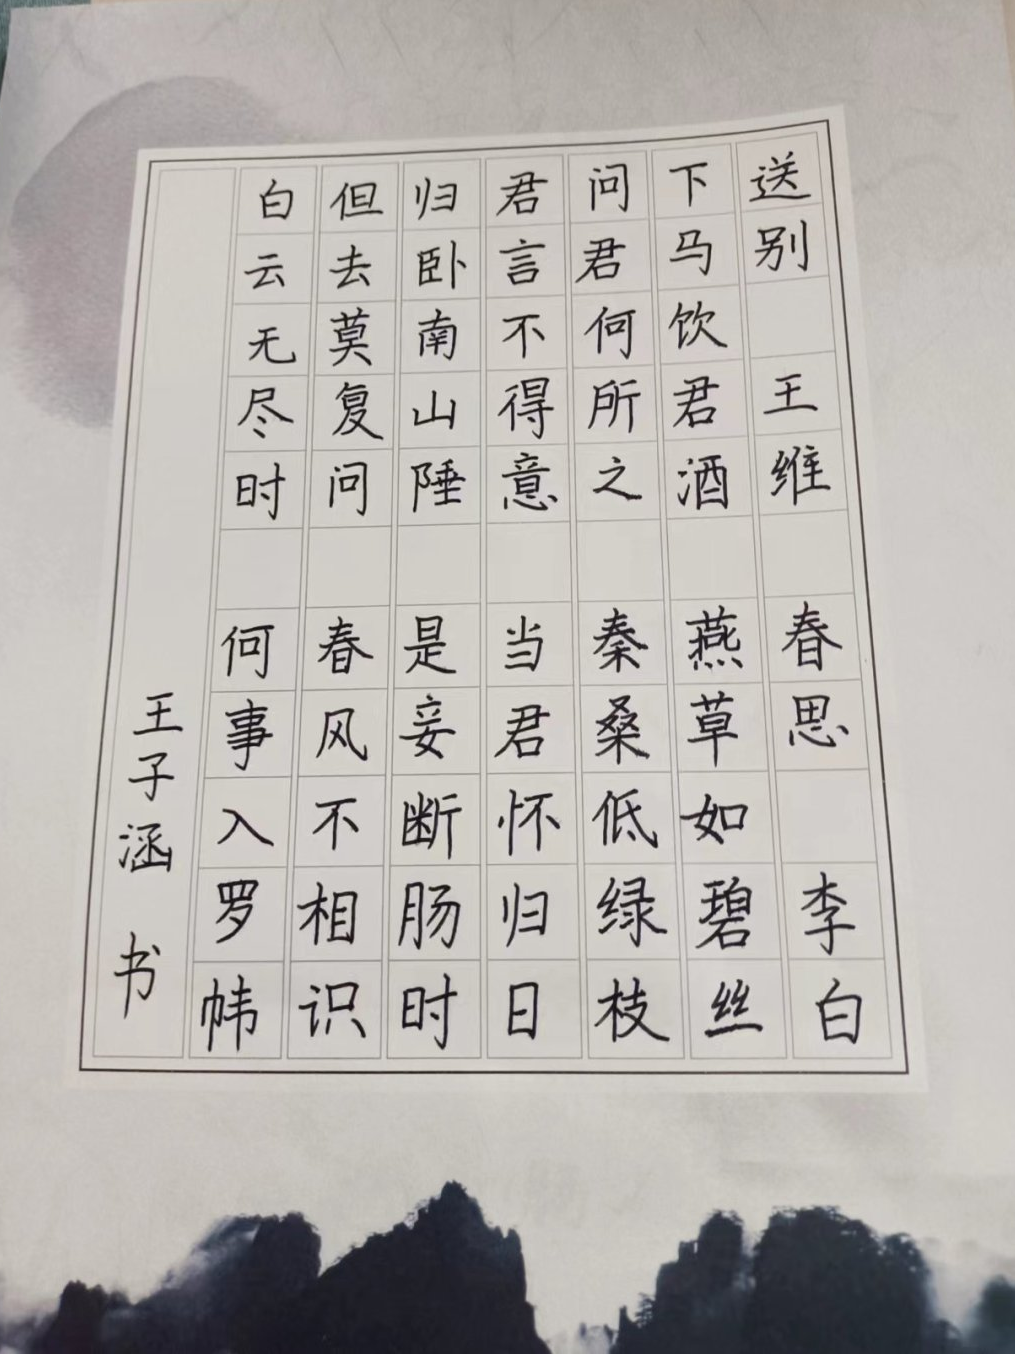 送别 王维
下马饮君酒
问君何所之
君言不得意
归卧南山陲
但去莫复问
白云无尽时
春思 李白
燕草如碧丝
秦桑低绿枝
当君怀归日
是妾断肠时
春风不相识
何事入罗帏
王子涵 书